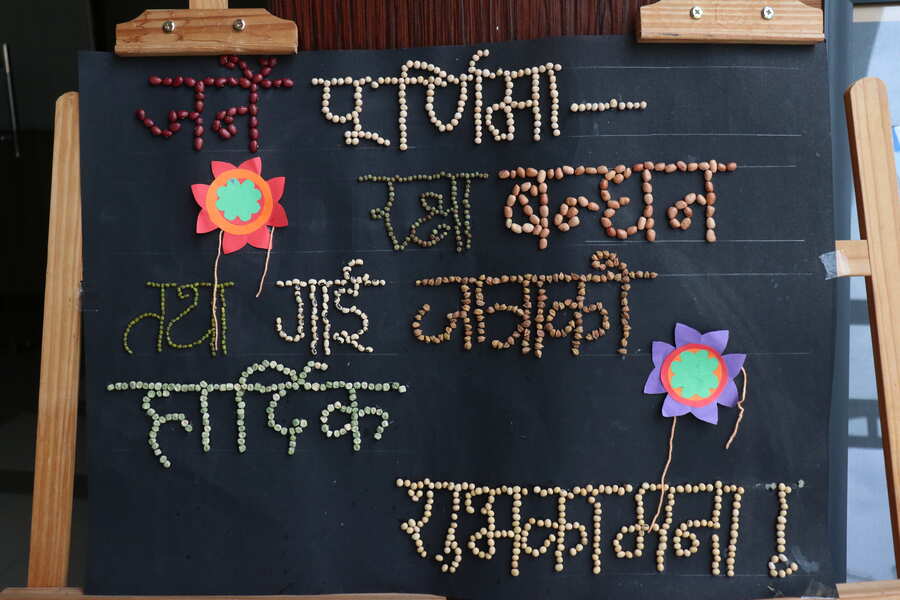 जनै पूर्णिमा —
रक्षा बन्धन
तथा गाई जात्राको
हार्दिक
शुभकामना !